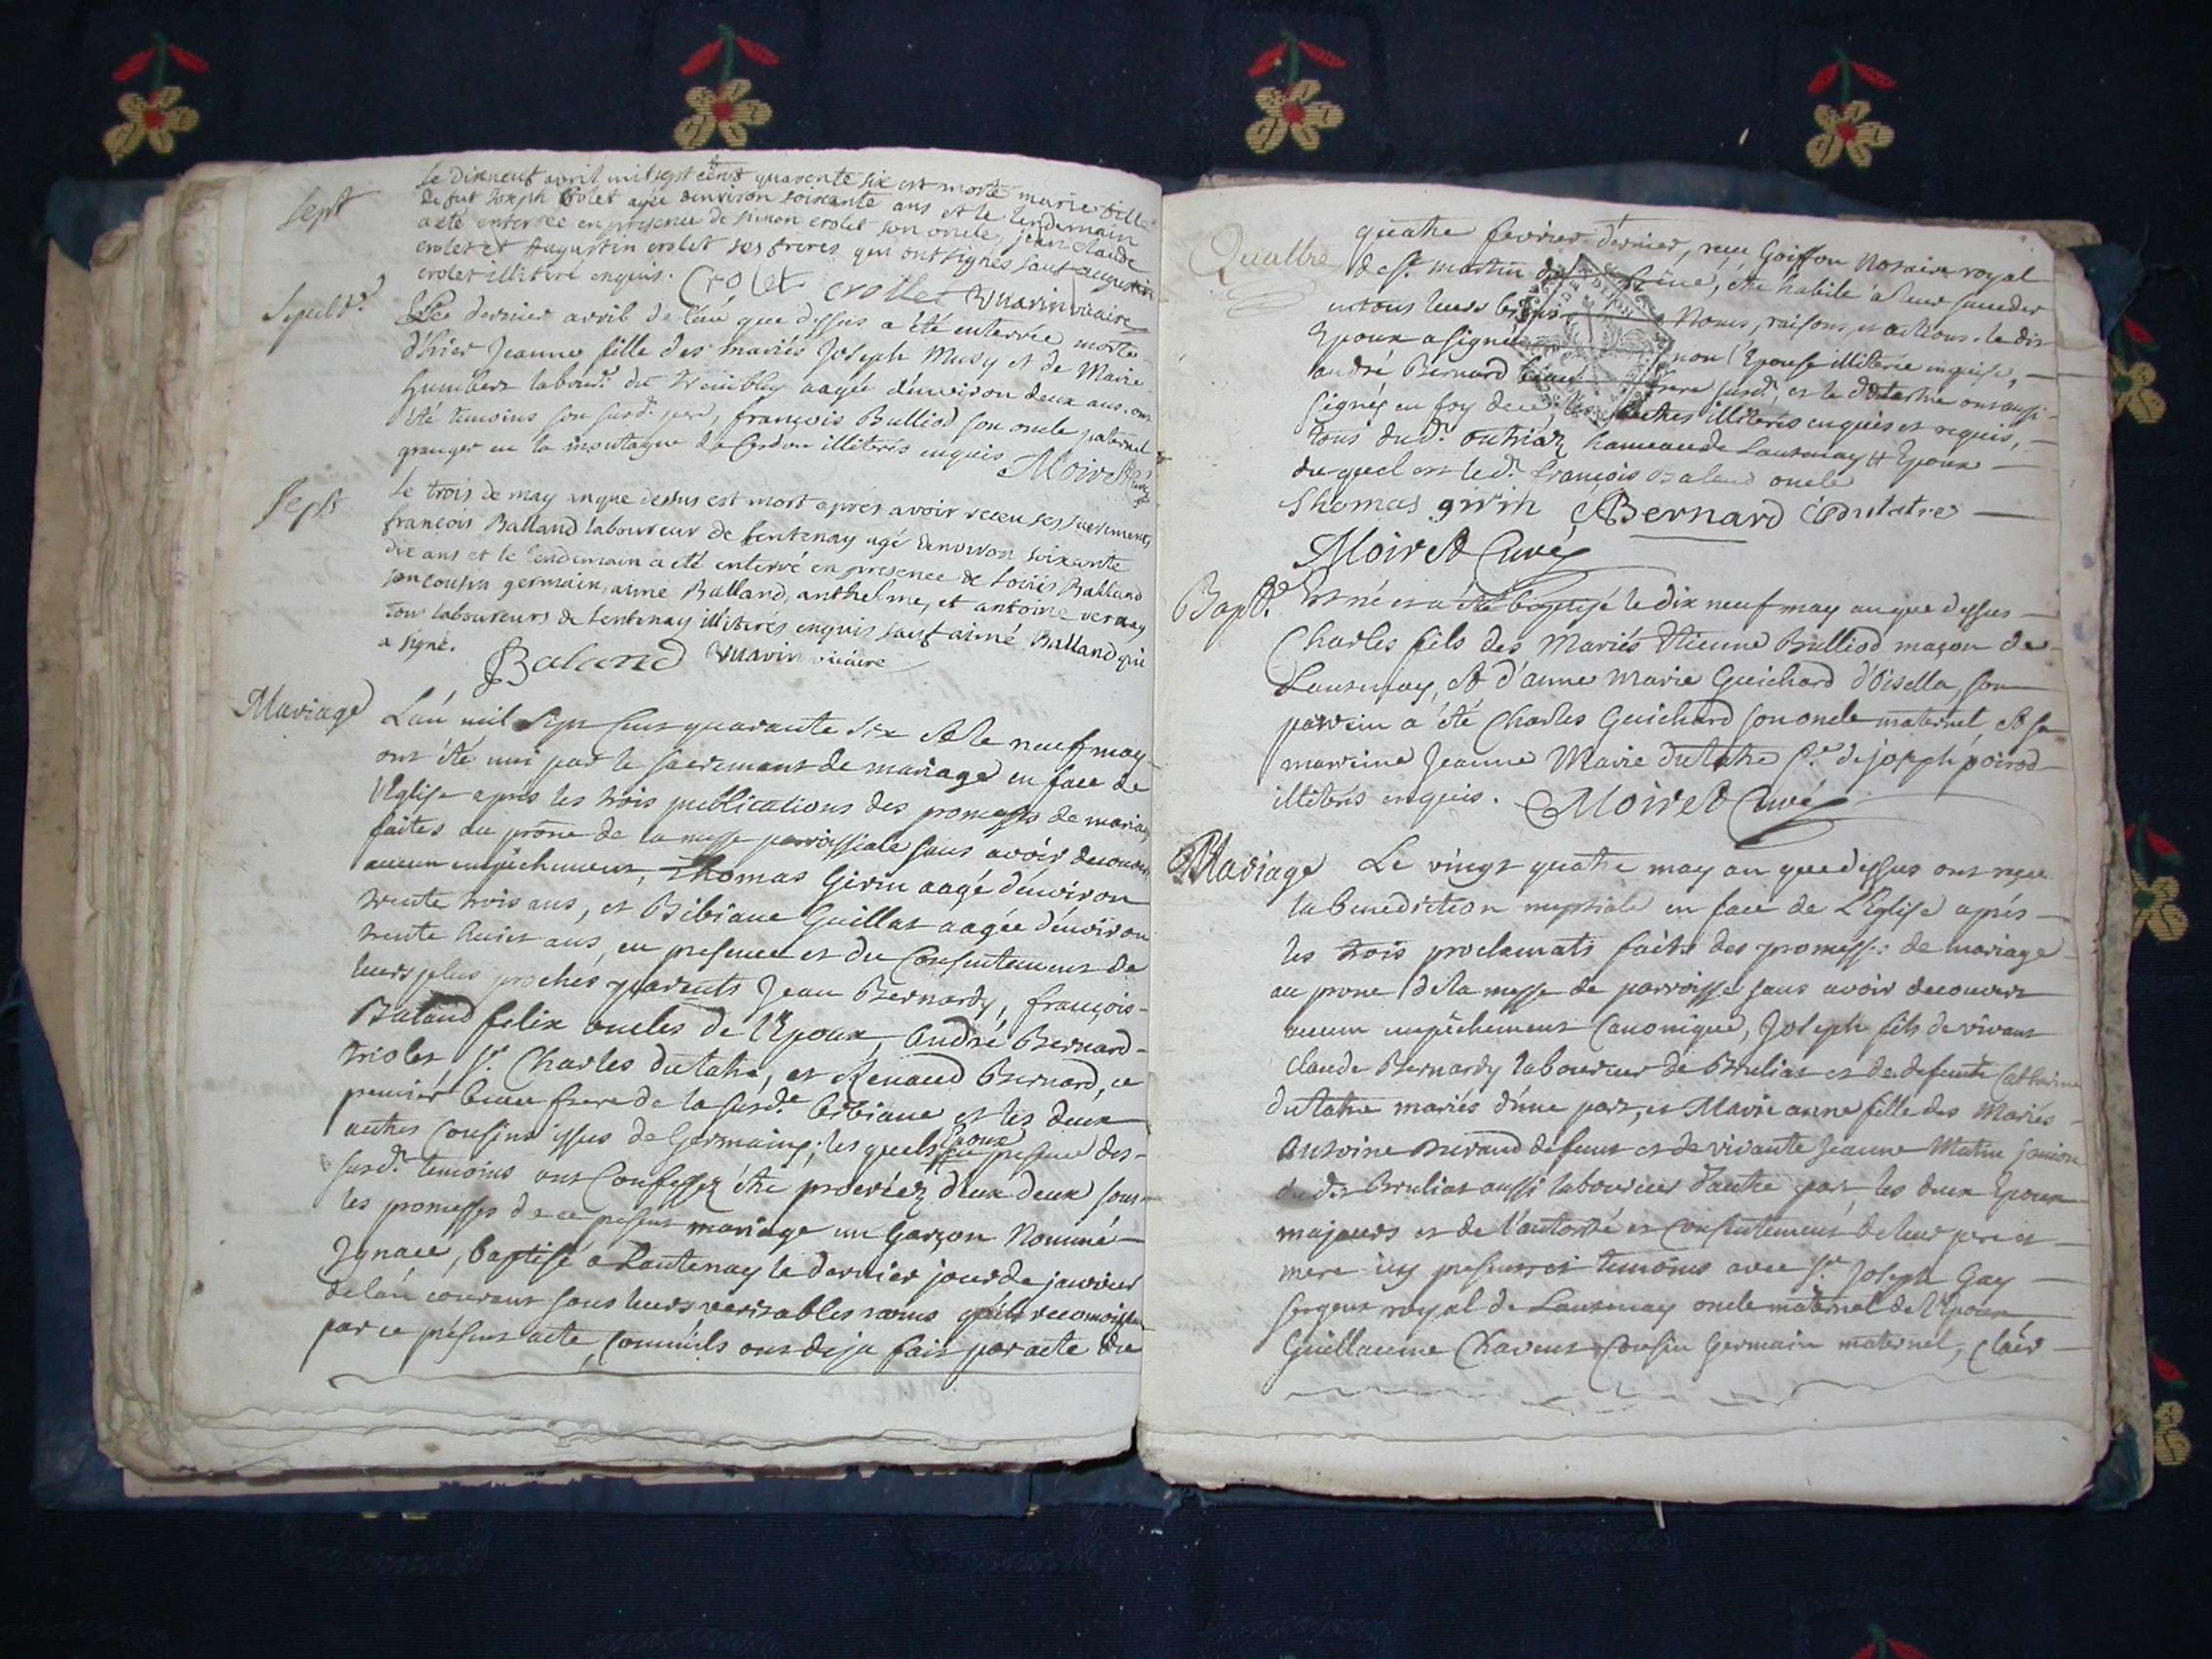 Sept
Le dixneuf avril mil sept cent quarente six est morte marie fille
de fut Joseph Crolet agée denviron soixante ans et le lendemain
a eté enterrée en presence de simon crolet son oncle, jean claude
crolet et Augustin crolet ses freres qui ont signés sauf augustin
crolet illiteré enquis. Crolet crollet Vuarin vicaire
Sepult.
Le dernier avril de l'an que dessus a été enterrée morte
d'hier Jeanne fille des mariés Joseph Musy et de Marie
humbert labour. du aagée d'environ deux ans. ont
été temoins son susd. pere, françois Bulliod son oncle paternel
granger en la montagne de Cerdon illiterés enquis Moiret Curé
Sept
Le trois de may an que dessus est mort apres avoir receu ses sacrements
francois Balland laboureur de Lentenay agé denviron soixante
dix ans et le lendemain a eté enterré en presence de Louis Balland
son cousin germain, aimé Balland, anthelme, et antoine vernay
tous laboureurs de Lentenay illiterés enquis sauf aimé Balland qui
a signé. Baland Vuarin vicaire
Mariage
L'an mil sept cent quarante six et le neuf may
ont été uni par le sacrement de mariage en face de
l'Eglise après les trois publications des promesses de mariage
faites au prône de la messe parroissiale sans avoir decouvert
aucun empêchement, Thomas Girin aagé d'environ
trente trois ans, et Bibiane Guillat aagée d'environ
trente huict ans, en presence et du Consentement de
leurs plus proches parents Jean Bernardy, françois
Baland felix oncles de l'Epoux, André Bernard
triolet, Sr. Charles dutatre, et Renaud Bernard, ce
premier beau frere de la susd.e bibiane et les deux
autres Cousins issus de Germains; les quels Epoux en presence des
susd. temoins ont Confessez être procréez d'eux deux sous
les promesses de ce present mariage un Garçon Nommé
Ignace, baptisé a Lantenay le dernier jour de janvier
de l'an courant sous leurs veritables noms qu'ils reconnoissent
par ce present acte, comm'ils ont deja fait par acte du
Quattre
quatre fevrier dernier, reçu Goiffon Notaire royal
de St. martin du frêne, être habile à leur succeder
en tous leurs biens Noms, raisons, et actions. le dit
Epoux a signé non l'Epouse illiterée enquise,
andré Bernard beau frere susd., et le dutatre ont aussi
signés en foy de ce, les autres illiterés enquis et requis,
tous dud. outriaz hameau de Lantenay # Epoux
du quel est le d. François Baland oncle
Thomas girin Bernard C Dutatre
Moiret Curé
Bapt.
Est né et a été baptisé le dix neuf may an que dessus
Charles fils des Mariés Etienne Bulliod maçon de
Lantenay, et d'anne marie Guichard d'Oisella, son
parrein a été Charles Guichard son oncle maternel, et sa
marreine Jeanne Marie dutatre f.e de joseph poirod
illiterés enquis. Moiret Curé
Mariage
Le vingt quatre may an que dessus ont reçu
la benediction nuptiale en face de L'Eglise après
les trois proclamats faits des promess: de mariage
au prone de la messe de parroisse sans avoir decouvert
aucun empêchement Canonique, Joseph fils de vivant
Claude Bernardy laboureur de Bruliat et de defunte Catherine
dutatre mariés d'une part, et Marie anne fille des Mariés
Antoine defunt et de vivante Jeanne
du dit Bruliat aussi laboureur d'autre part, les deux Epoux
majeurs et de l'autorité et Consentement de leur pere et
mere icy presents et temoins avec Sr. Joseph Gay
sergent royal de Lantenay oncle maternel de l'Epoux
Guillaume Chavent Cousin Germain maternel, Clair